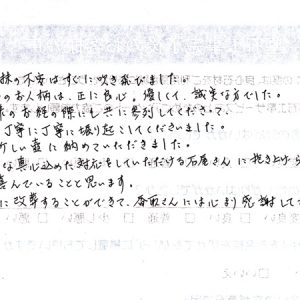 抹の不安はすぐに吹き飛びました。
のお人柄は、正に良心。優しくて、誠実な方でした。
の際にも共に参列してくださって、
丁寧に丁寧に掘り起こしてくださいました。
新しい壺に納めていただきました。
な真心込めた対応をしていただける石屋さんに抱き上げら
喜んでいることと思います。
に改葬することができて、香取さんには心より感謝して